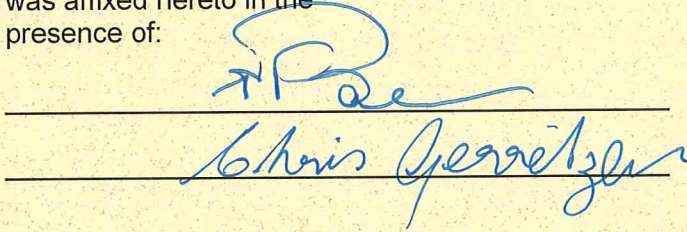 was affixed hereto in the
presence of:
Chris Gerritzen